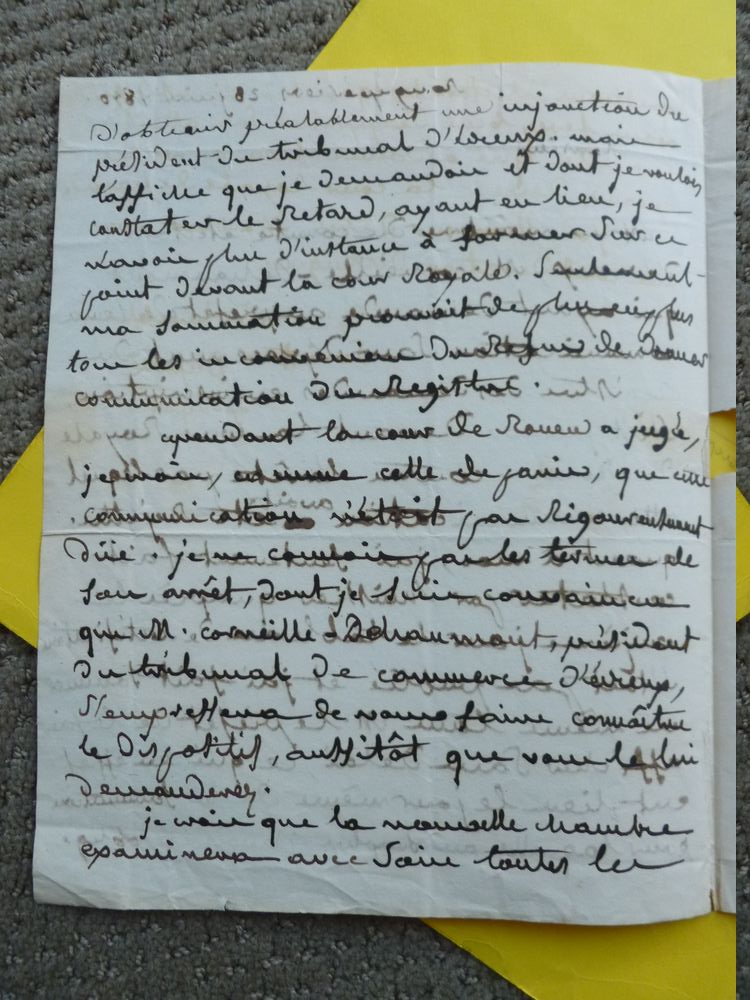 D'obtenir préalablement une injonction du
président du tribunal d'Évreux. mais
l'affiche que je demandois et dont je voulois
constater le retard, ayant eu lieu, je
n'avois plus d'instance à former sur ce
point devant la cour Royale. Seulement
ma sommation prouvoit de plus en plus
tous les inconvéniens du Refus de donner
communication du Registre.
cependant la cour de Rouen a jugé,
je crois, comme celle de paris, que cette
communication n'étoit pas Rigoureusement
Düe. je ne connois pas les termes de
son arrêt, dont je suis convaincu
que M. corneille - Dehaumont, président
du tribunal de commerce d'évreux,
s'empressera de vous faire connaître
le Dispositif, aussitôt que vous le lui
demanderez.
je crois que la nouvelle chambre
examinera avec soin toutes les